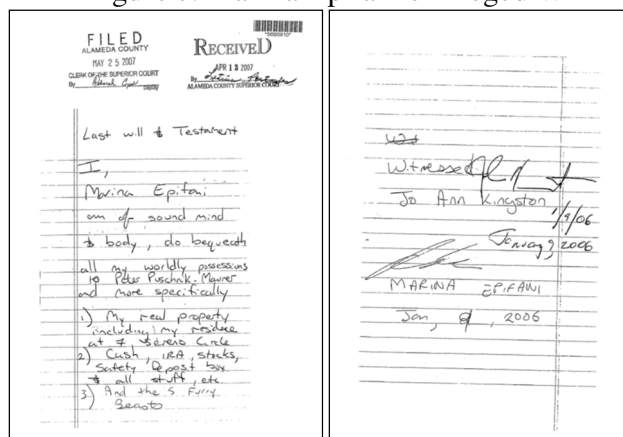 FILED
ALAMEDA COUNTY
MAY 25 2007
CLERK OF THE SUPERIOR COURT
By Deputy
RECEIVED
APR 13 2007
By
ALAMEDA COUNTY SUPERIOR COURT
Last will & Testament
I,
Marina Epifani
am of sound mind
& body, do bequeath
all my worldly possessions
to Peter Puschnik-Maurer
and more specifically
1) My real property
including my residence
at 7 Sereno Circle
2) Cash, IRA, stocks,
Safety Deposit box
& all stuff, etc
3) And the 5 Furry
Beasts
Witnessed
Jo Ann Kingston
1/9/06
January 9 2006
MARINA EPIFANI
Jan, 9, 2006